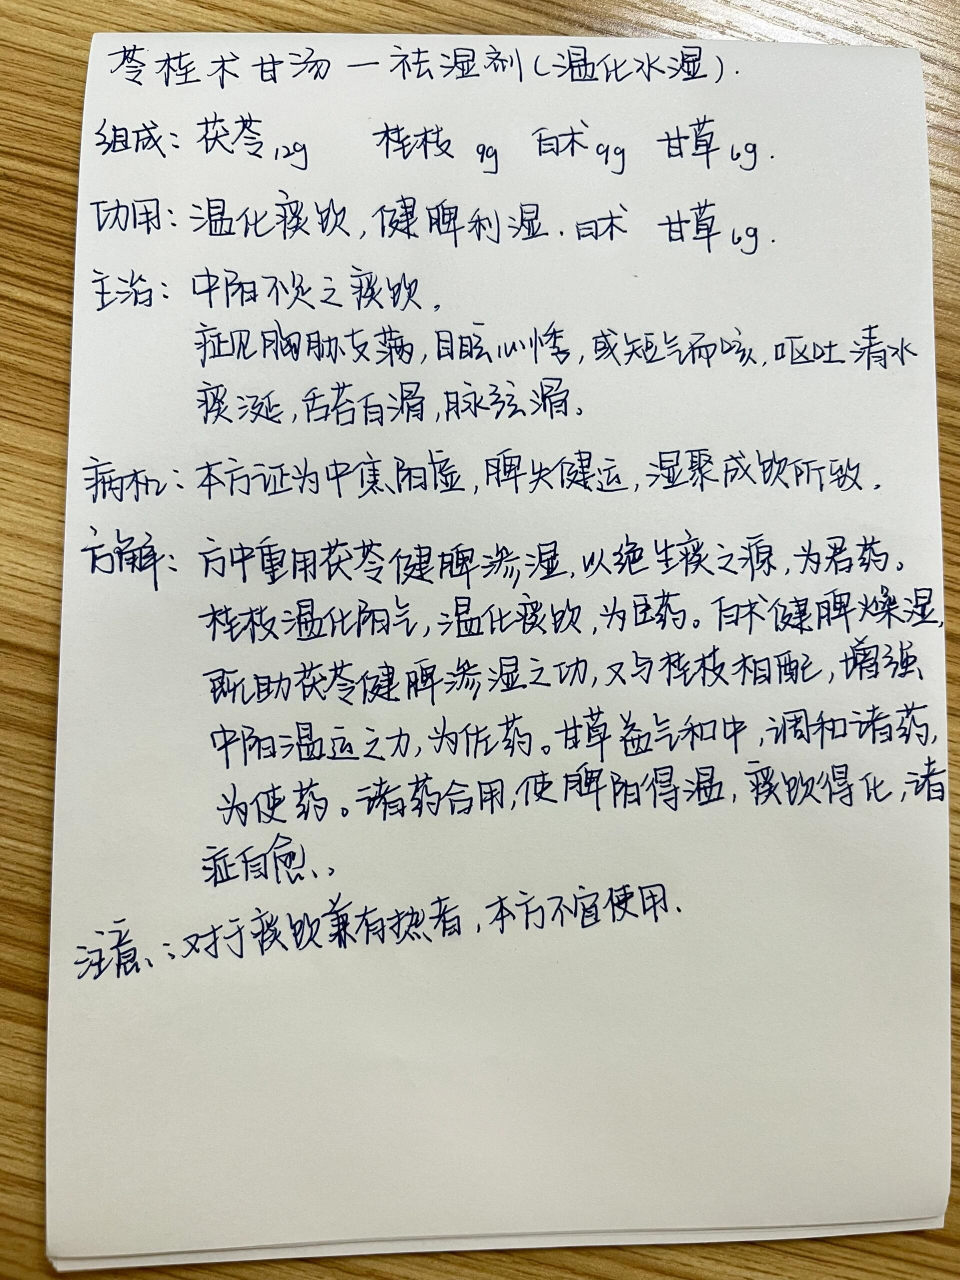 苓桂术甘汤一祛湿剂(温化水湿).
组成:茯苓12g 桂枝9g 白术9g 甘草6g.
功用:温化痰饮,健脾利湿.白术 甘草6g.
主治:中阳不足之痰饮.
症见胸胁支满,目眩心悸,或短气而咳,呕吐清水
痰涎,舌苔白滑,脉弦滑。
病机:本方证为中焦阳虚,脾失健运,湿聚成饮所致.
方解:方中重用茯苓健脾渗湿,以绝生痰之源,为君药。
桂枝温化阳气,温化痰饮,为臣药。白术健脾燥湿,
既助茯苓健脾渗湿之功,又与桂枝相配,增强
中阳温运之力,为佐药。甘草益气和中,调和诸药,
为使药。诸药合用,使脾阳得温,痰饮得化,诸
症自愈。
注意:对于痰饮兼有热者,本方不宜使用.